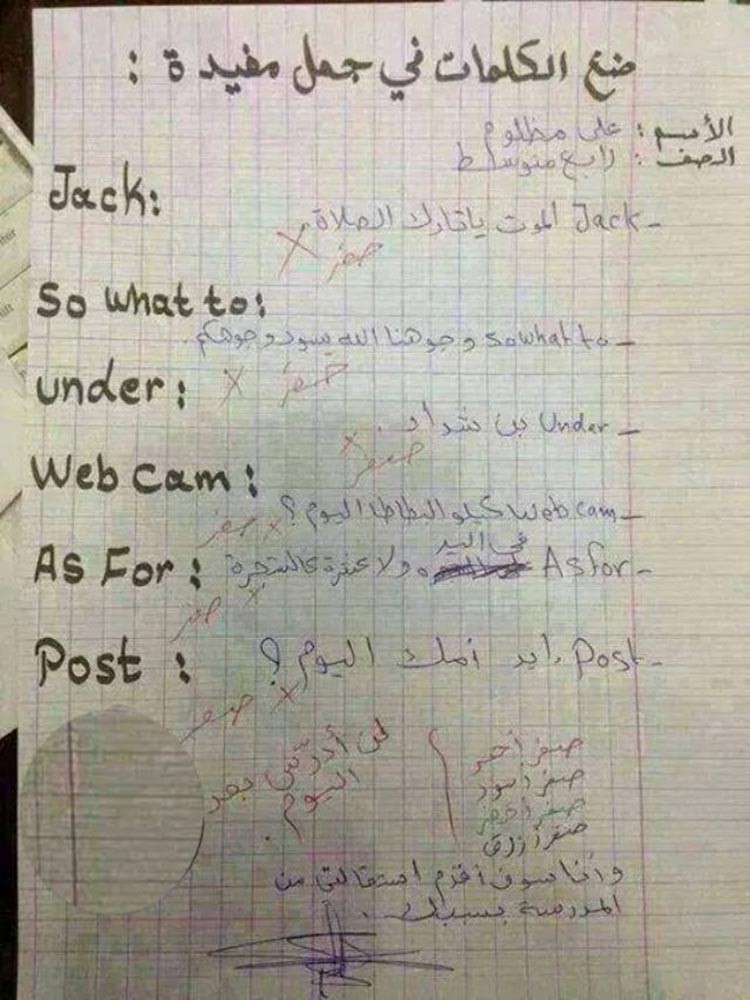 ضع الكلمات في جمل مفيدة :
الأسم : علي مظلوم
الصف : رابع متوسط
Jack:
- Jack الموت ياتارك الصلاة.
X صفر
So what to:
- so what to وجوهنا الله يسود وجوهكم.
under:
X صفر
- Under بن شداد.
X صفر
Web cam:
- Web cam كيلو البطاطا اليوم؟
X صفر
As For:
- As for في اليد ولا عشرة عالشجرة
X صفر
Post :
- Post. ايد أمك اليوم؟
X صفر
صفر أحمر
صفر أسود
صفر أخضر
صفر أزرق
لن أدرّس بعد
اليوم.
وأنا سوف أقدم استقالتي من
المدرسة بسببك.